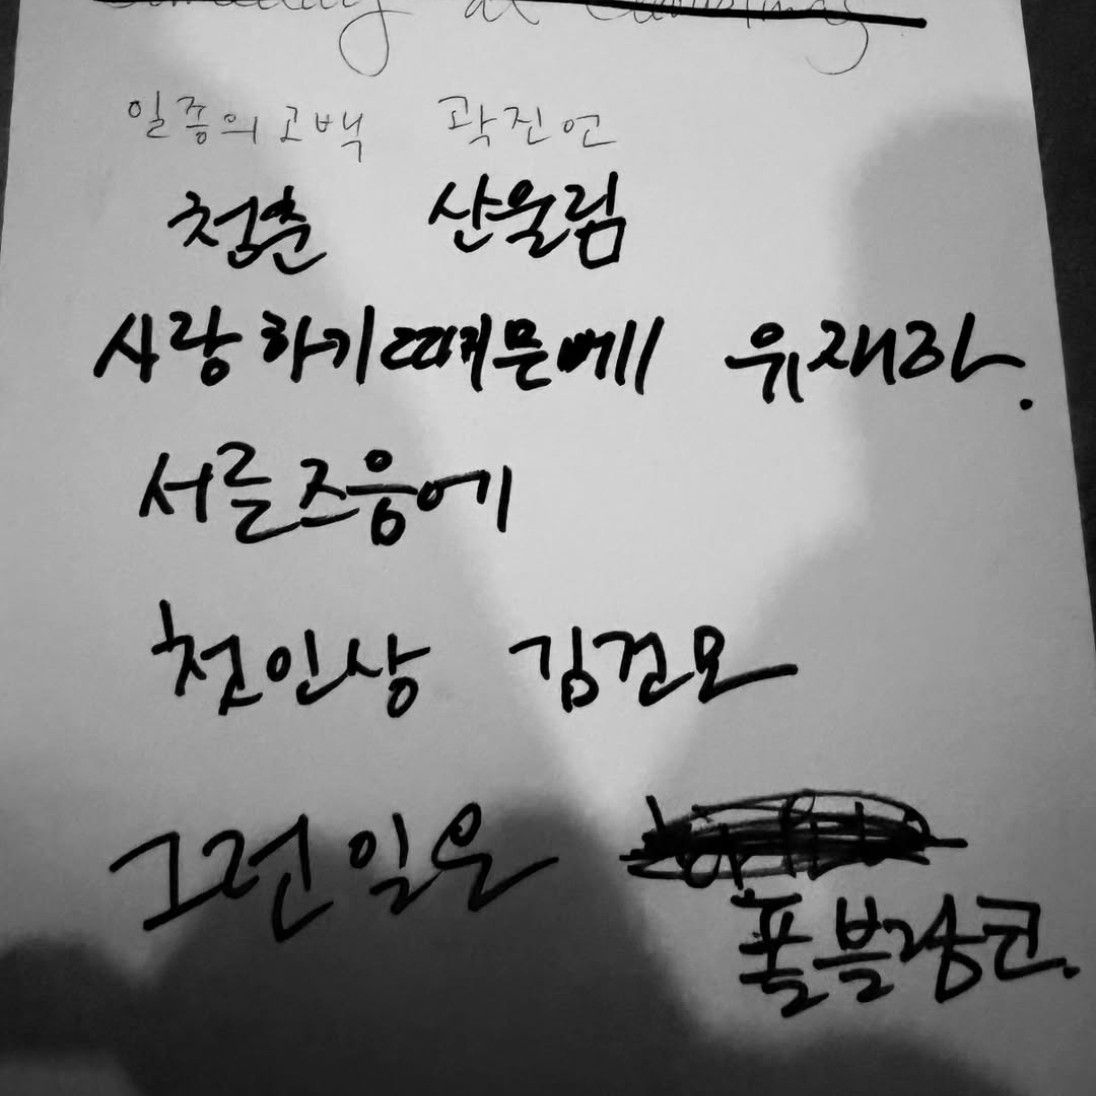 Someday at Christmas
일종의고백 곽진언
청춘 산울림
사랑하기때문에 유재하.
서른즈음에
첫인상 김건모
그런일은
폴블랑코.